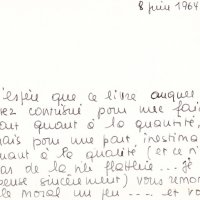 8 juin 1964
'espère que ce livre auquel
vez contribué pour une fai
out quant à la quantité,
mais pour une part inestima
uant à la qualité (et ce n'
as de la flatterie... je
pense sincèrement) vous remon
le moral un peu .... et vo